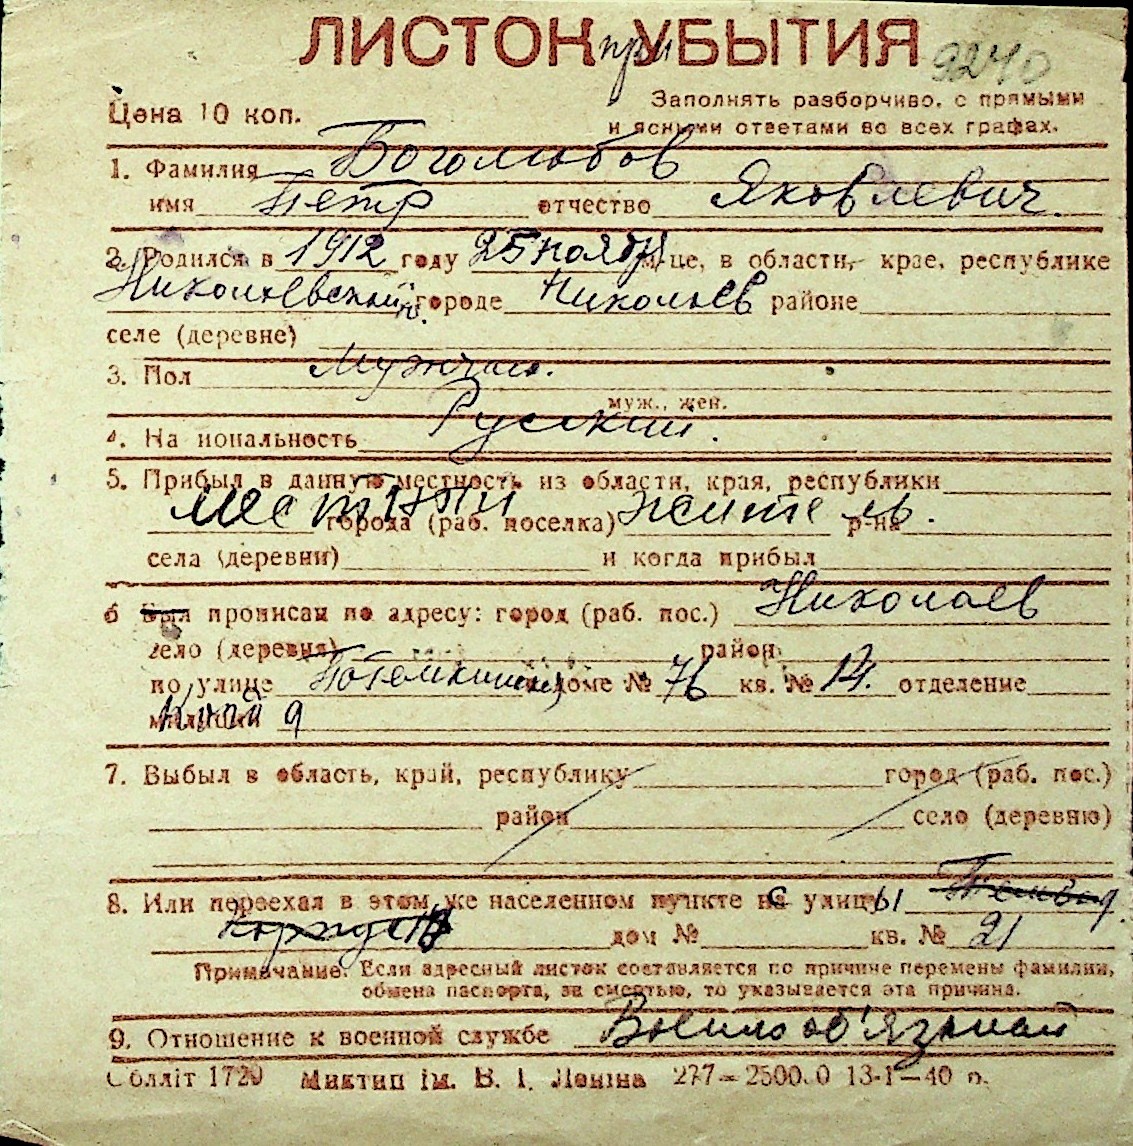 ЛИСТОК при УБЫТИЯ 9240
Цена 10 коп. Заполнять разборчиво, с прямыми
и ясными ответами во всех графах.
1. Фамилия Боголюбов
имя Петр отчество Яковлевич.
2. Родился в 1912 году 25 ноября м-це, в области, крае, республике
Николаевской городе Николаев районе
селе (деревне)
3. Пол Мужчин.
муж., жен.
4. На иональность Русский.
5. Прибыл в данную местность из области, края, республики
местный города (раб. поселка) житель. р-на
села (деревни) и когда прибыл
6 Был прописан по адресу: город (раб. пос.) Николаев
село (деревня) район
по улице доме № 76 кв. № отделение
милиции 9
7. Выбыл в область, край, республику город (раб. пос.)
район село (деревню)
8. Или переехал в этом же населенном пункте с улицы
дом № кв. № 21
Примечание: Если адресный листок составляется по причине перемены фамилии,
обмена паспорта, за смертью, то указывается эта причина.
9. Отношение к военной службе Военнооб'язаный
Облліт 1720 Миктип ім. В. І. Леніна 277—2500.0 13-І—40 р.